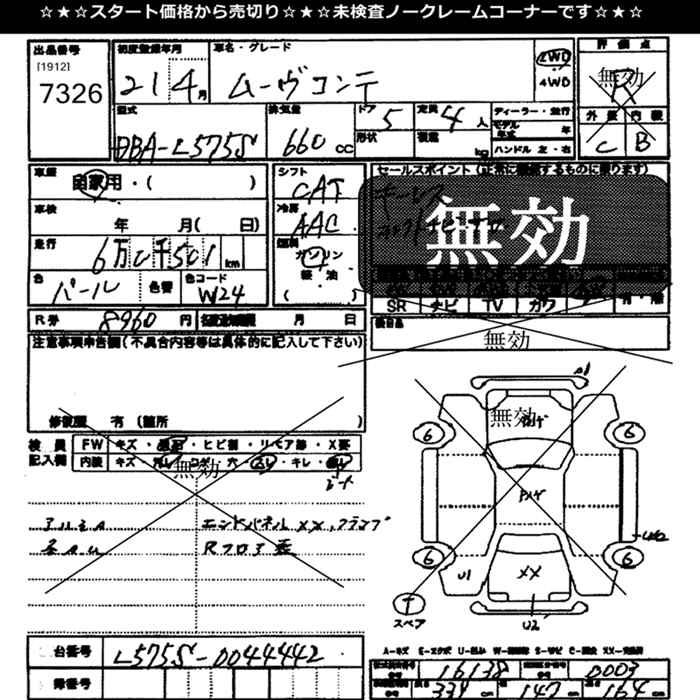 ☆★☆スタート価格から売切り☆★☆未検査ノークレームコーナーです☆★☆
出品番号
[1912]
7326
初度登録年月
21 4月
車名・グレード
ムーヴコンテ
2WD
4WD
評価点
無効
R
外装 内装
C B
型式
DBA-L575S
排気量
660cc
ドア 5
形状
定員 4人
積載 kg
ディーラー・並行
モデル年式 年
ハンドル 左・右
車歴
自家用・( )
車検
年 月( 日)
走行
6万0千501km
色
パール
色替
色コード
W24
シフト
CAT
冷房
AAC
燃料
ガソリン
軽油
( )
セールスポイント(正常に機能するものに限ります)
キーレス
無効
SR ナビ TV カワ
有・無
R券 8960円
月 日
後日品
無効
注意事項申告欄(不具合内容等は具体的に記入して下さい)
修復歴 有(箇所 )
検査員記入欄
FW キズ・飛石・ヒビ割・リペア跡・X要
内装 キズ・汚レ・コゲ・穴・スレ・キレ・
シート
無効
アルミA エンドパネルXX,フランプ
Rフロア歪
無効
ハゲ
6
6
6
6
A1
U1
XX
U2
T
スペア
A-キズ E-エクボ U-凹ミ
台番号
L575S-0044442
録番号
16138
0003
339cm
147cm
164